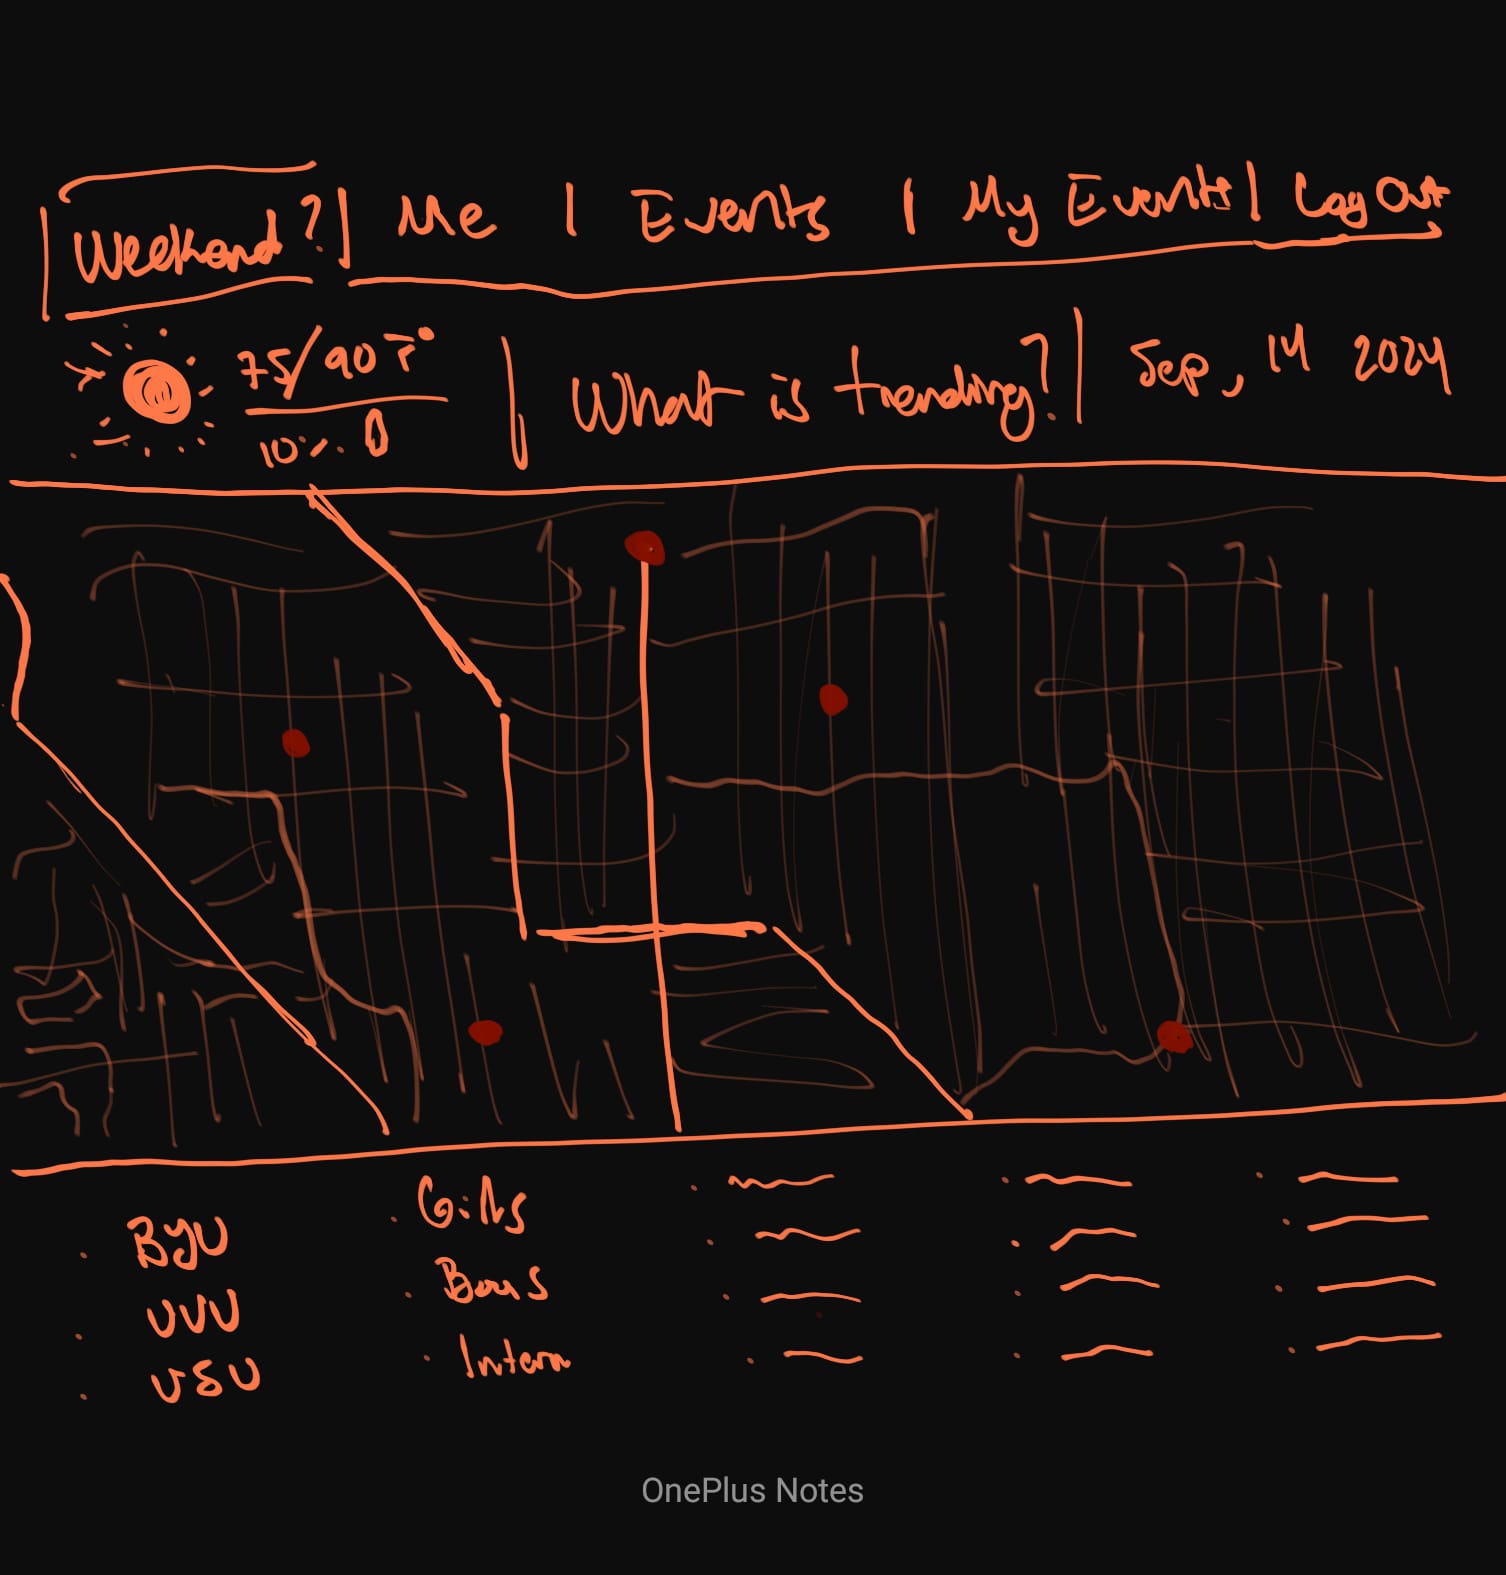 Weekend? | Me | Events | My Events | Log Out
75/90 F° | What is trending? | Sep, 14 2024
10%
BYU
UVU
USU
Girls
Boys
Intern
OnePlus Notes